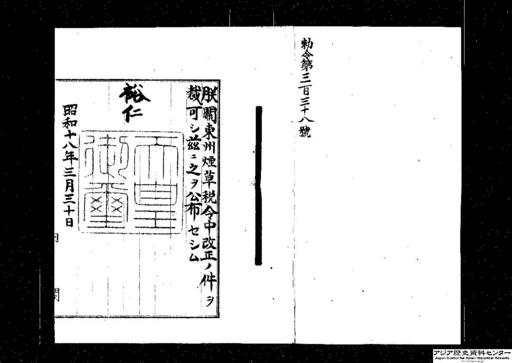 勅令第三百三十八號
朕關東州煙草税令中改正ノ件ヲ
裁可シ茲ニ之ヲ公布セシム
裕仁
天皇
御璽
昭和十八年三月三十日
内
閣
アジア歴史資料センター
Japan Center for Asian Historical Records